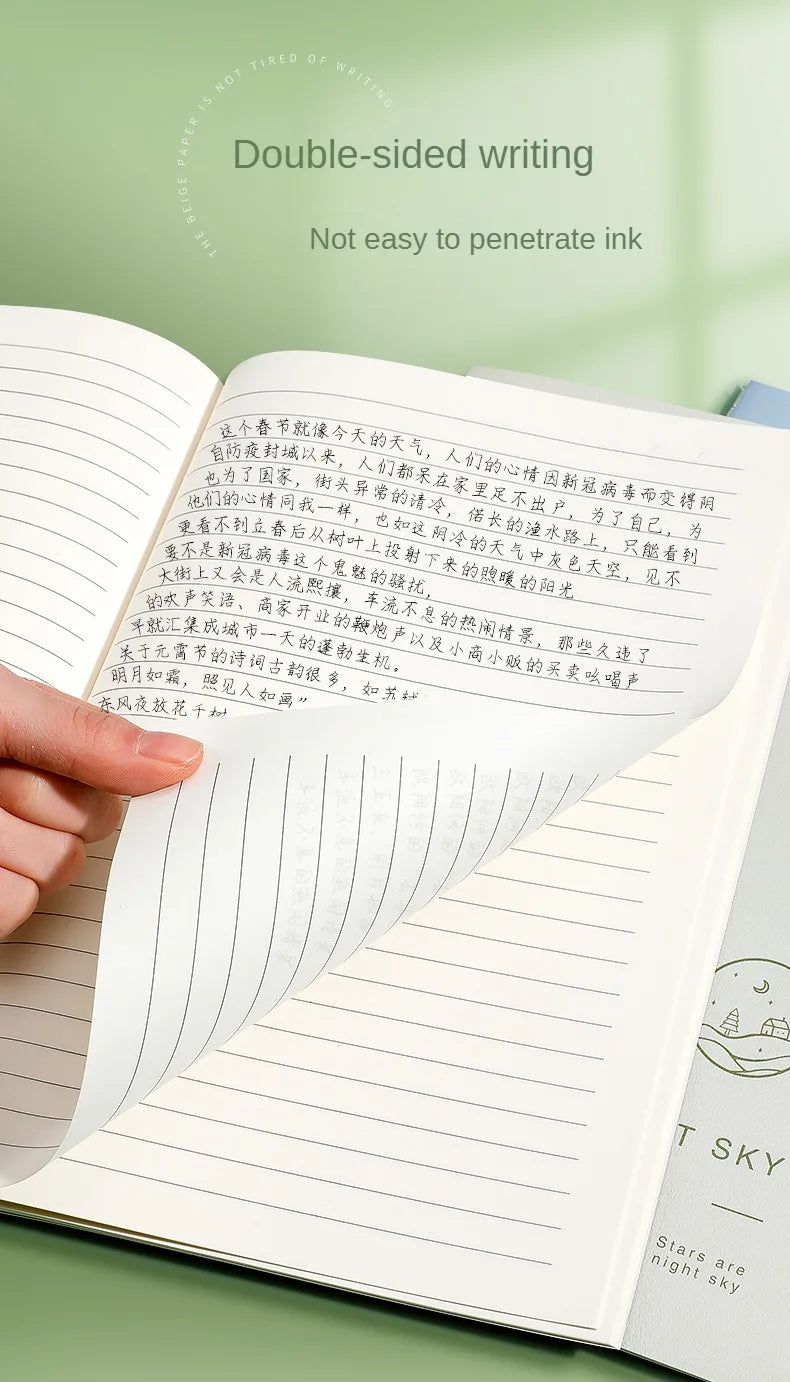 THE BEIGE PAPER IS NOT TIRED OF WRITING
Double-sided writing
Not easy to penetrate ink
这个春节就像今天的天气，人们的心情因新冠病毒而变得阴
自防疫封城以来，人们都呆在家里足不出户，为了自己，为
也为了国家，街头异常的清冷，偌长的渔水路上，只能看到
他们的心情同我一样，也如这阴冷的天气中灰色天空，见不
更看不到立春后从树叶上投射下来的煦暖的阳光
要不是新冠病毒这个鬼魅的骚扰，
大街上又会是人流熙攘，车流不息的热闹情景，那些久违了
的欢声笑语、商家开业的鞭炮声以及小商小贩的买卖吆喝声
早就汇集成城市一天的蓬勃生机。
关于元宵节的诗词古韵很多，如苏轼
明月如霜，照见人如画”
东风夜放花千树
T SKY
Stars are
night sky